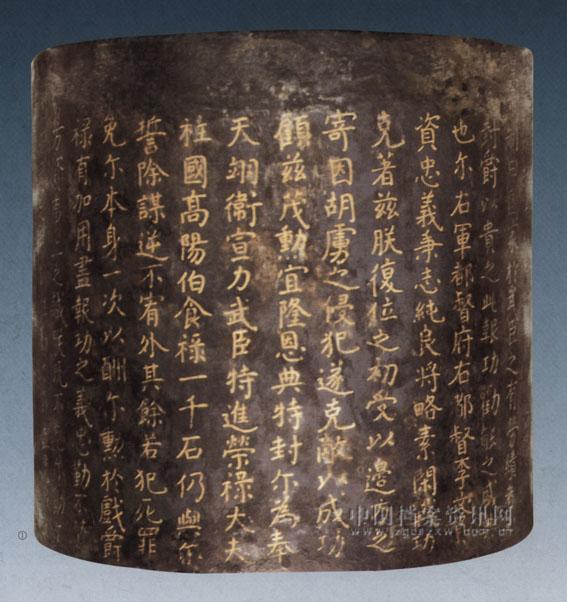 武臣之有績
封爵以貴之此報功勸能之盛
也尔右軍都督府右都督李文
資忠義秉志純良將略素閑戰功
克著茲朕復位之初受以邊之
寄因胡虜之侵犯遂克敵以成功
顧茲茂勳宜隆恩典特封尔為奉
天翊衛宣力武臣特進榮祿大夫
柱國高陽伯食祿一千石仍與尔
誓除謀逆不宥外其餘若犯死罪
免尔本身一次以酬尔勲於戲爵
祿有加用盡報功之義忠勤不
①
中国档案资讯网
www.zgdazxw.com.cn